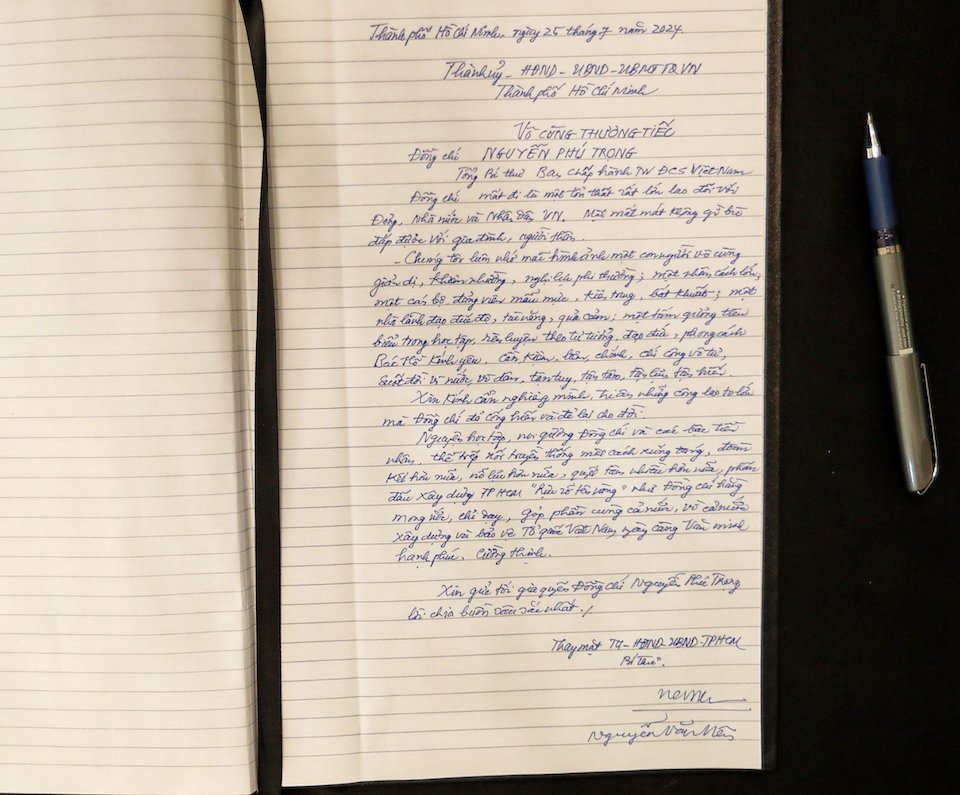 Thành phố Hồ Chí Minh, ngày 25 tháng 7 năm 2024
Thành ủy - HĐND - UBND - UBMTTQVN
Thành phố Hồ Chí Minh
Vô cùng THƯƠNG TIẾC
Đồng chí NGUYỄN PHÚ TRỌNG
Tổng Bí thư Ban Chấp hành TW ĐCS Việt Nam
Đồng chí mất đi là một tổn thất rất lớn lao đối với
Đảng, Nhà nước và Nhân Dân VN. Một mất mát không gì bù
đắp được với gia đình, người thân.
- Chúng tôi luôn nhớ mãi hình ảnh một con người vô cùng
giản dị, khiêm nhường, nghị lực phi thường; một nhân cách lớn;
một cán bộ đảng viên mẫu mực, kiên trung, bất khuất; một
nhà lãnh đạo đức độ, tài năng, quả cảm; một tấm gương tiêu
biểu trong học tập, rèn luyện theo tư tưởng, đạo đức, phong cách
Bác Hồ kính yêu. Cần Kiệm, liêm, chính, chí công vô tư,
suốt đời vì nước, vì dân, tận tụy, tận tâm, tận lực, tận hiến.
Xin kính cẩn nghiêng mình, tri ân những công lao to lớn
mà Đồng chí đã cống hiến và để lại cho đời.
Nguyện học tập, noi gương Đồng chí và các bậc tiền
nhân, tiếp nối truyền thống một cách xứng đáng, đoàn
kết hơn nữa, nỗ lực hơn nữa, quyết tâm nhiều hơn nữa, phấn
đấu xây dựng TP HCM "rực rỡ tên vàng" như Đồng chí hằng
mong ước, chỉ dạy, góp phần cùng cả nước, vì cả nước
xây dựng và bảo vệ Tổ quốc Việt Nam ngày càng Văn minh
hạnh phúc. Cường thịnh.
Xin gửi tới gia quyến Đồng chí Nguyễn Phú Trọng
lời chia buồn sâu sắc nhất./.
Thay mặt TU - HĐND - UBND - TPHCM
Bí thư
Nguyễn Văn Nên